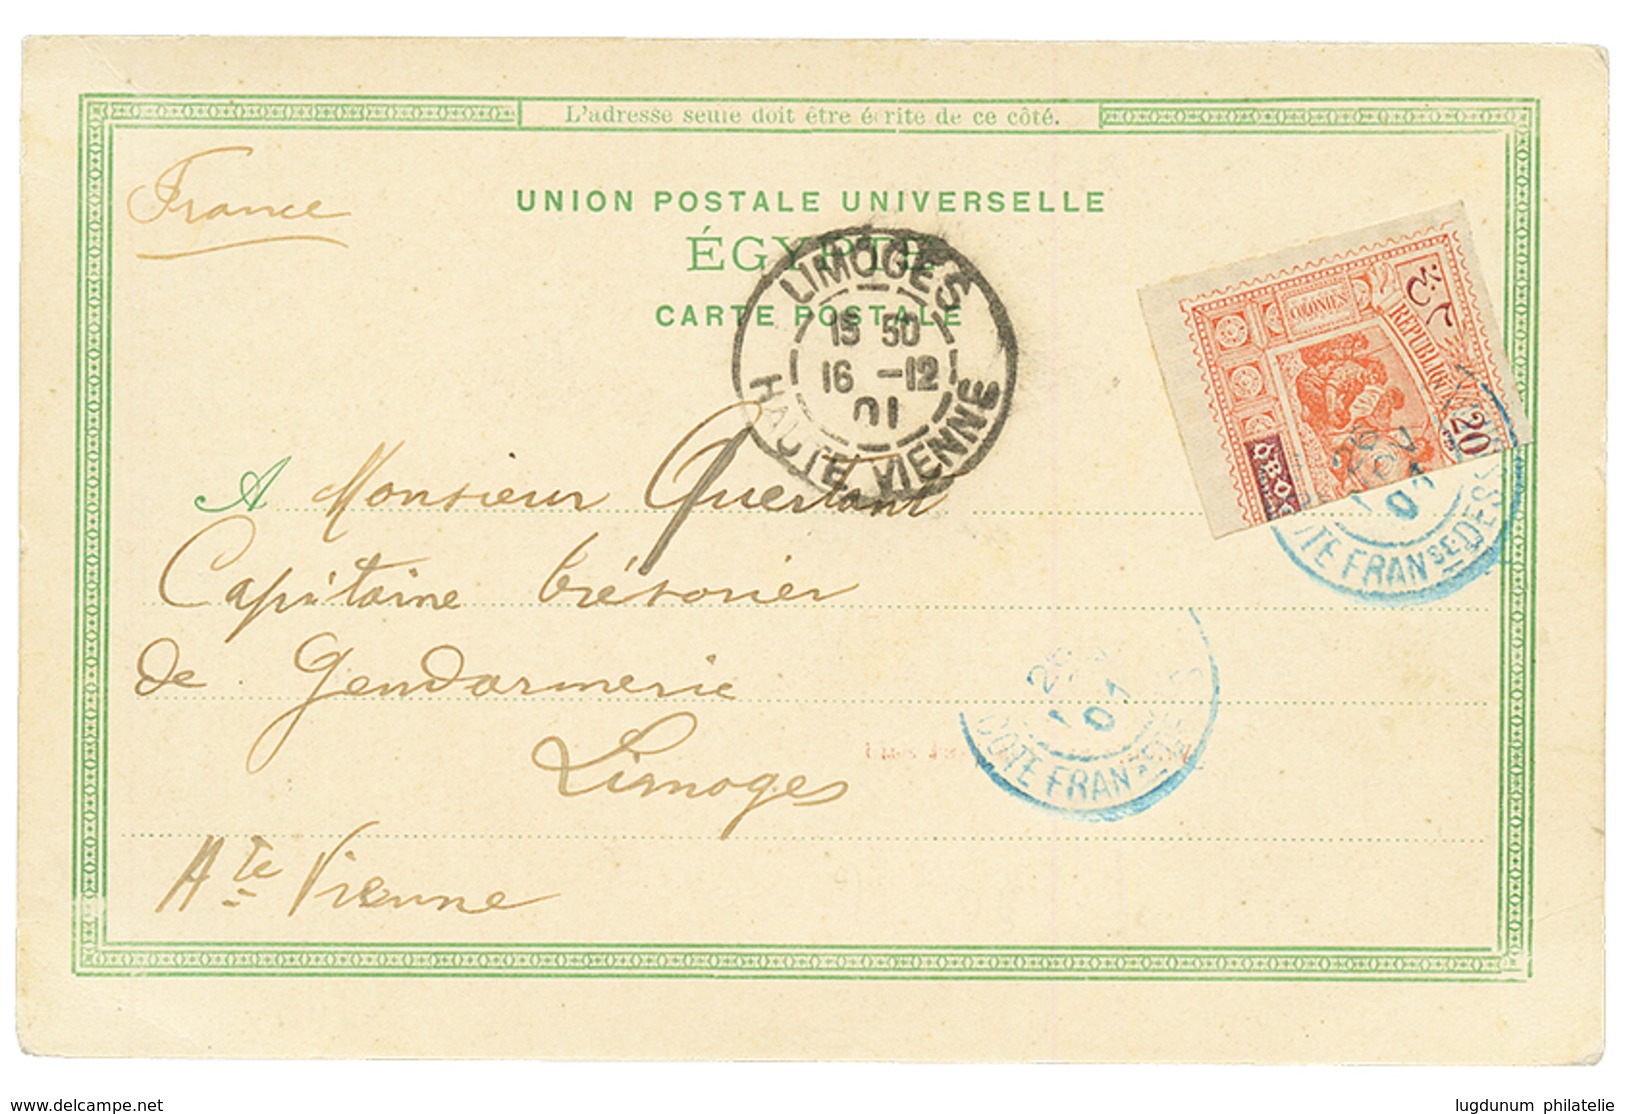 L'adresse seule doit être écrite de ce côté.
France
UNION POSTALE UNIVERSELLE
ÉGYPTE
CARTE POSTALE
LIMOGES
15 50
16 -12
01
HAUTE VIENNE
COLONIES
RÉPUBLIQUE
20
CÔTE FRANSE DES
A Monsieur Quertant
Capitaine trésorier
de Gendarmerie
Limoges
Hte Vienne
COTE FRANSE DES
delcampe.net
lugdunum philatelie